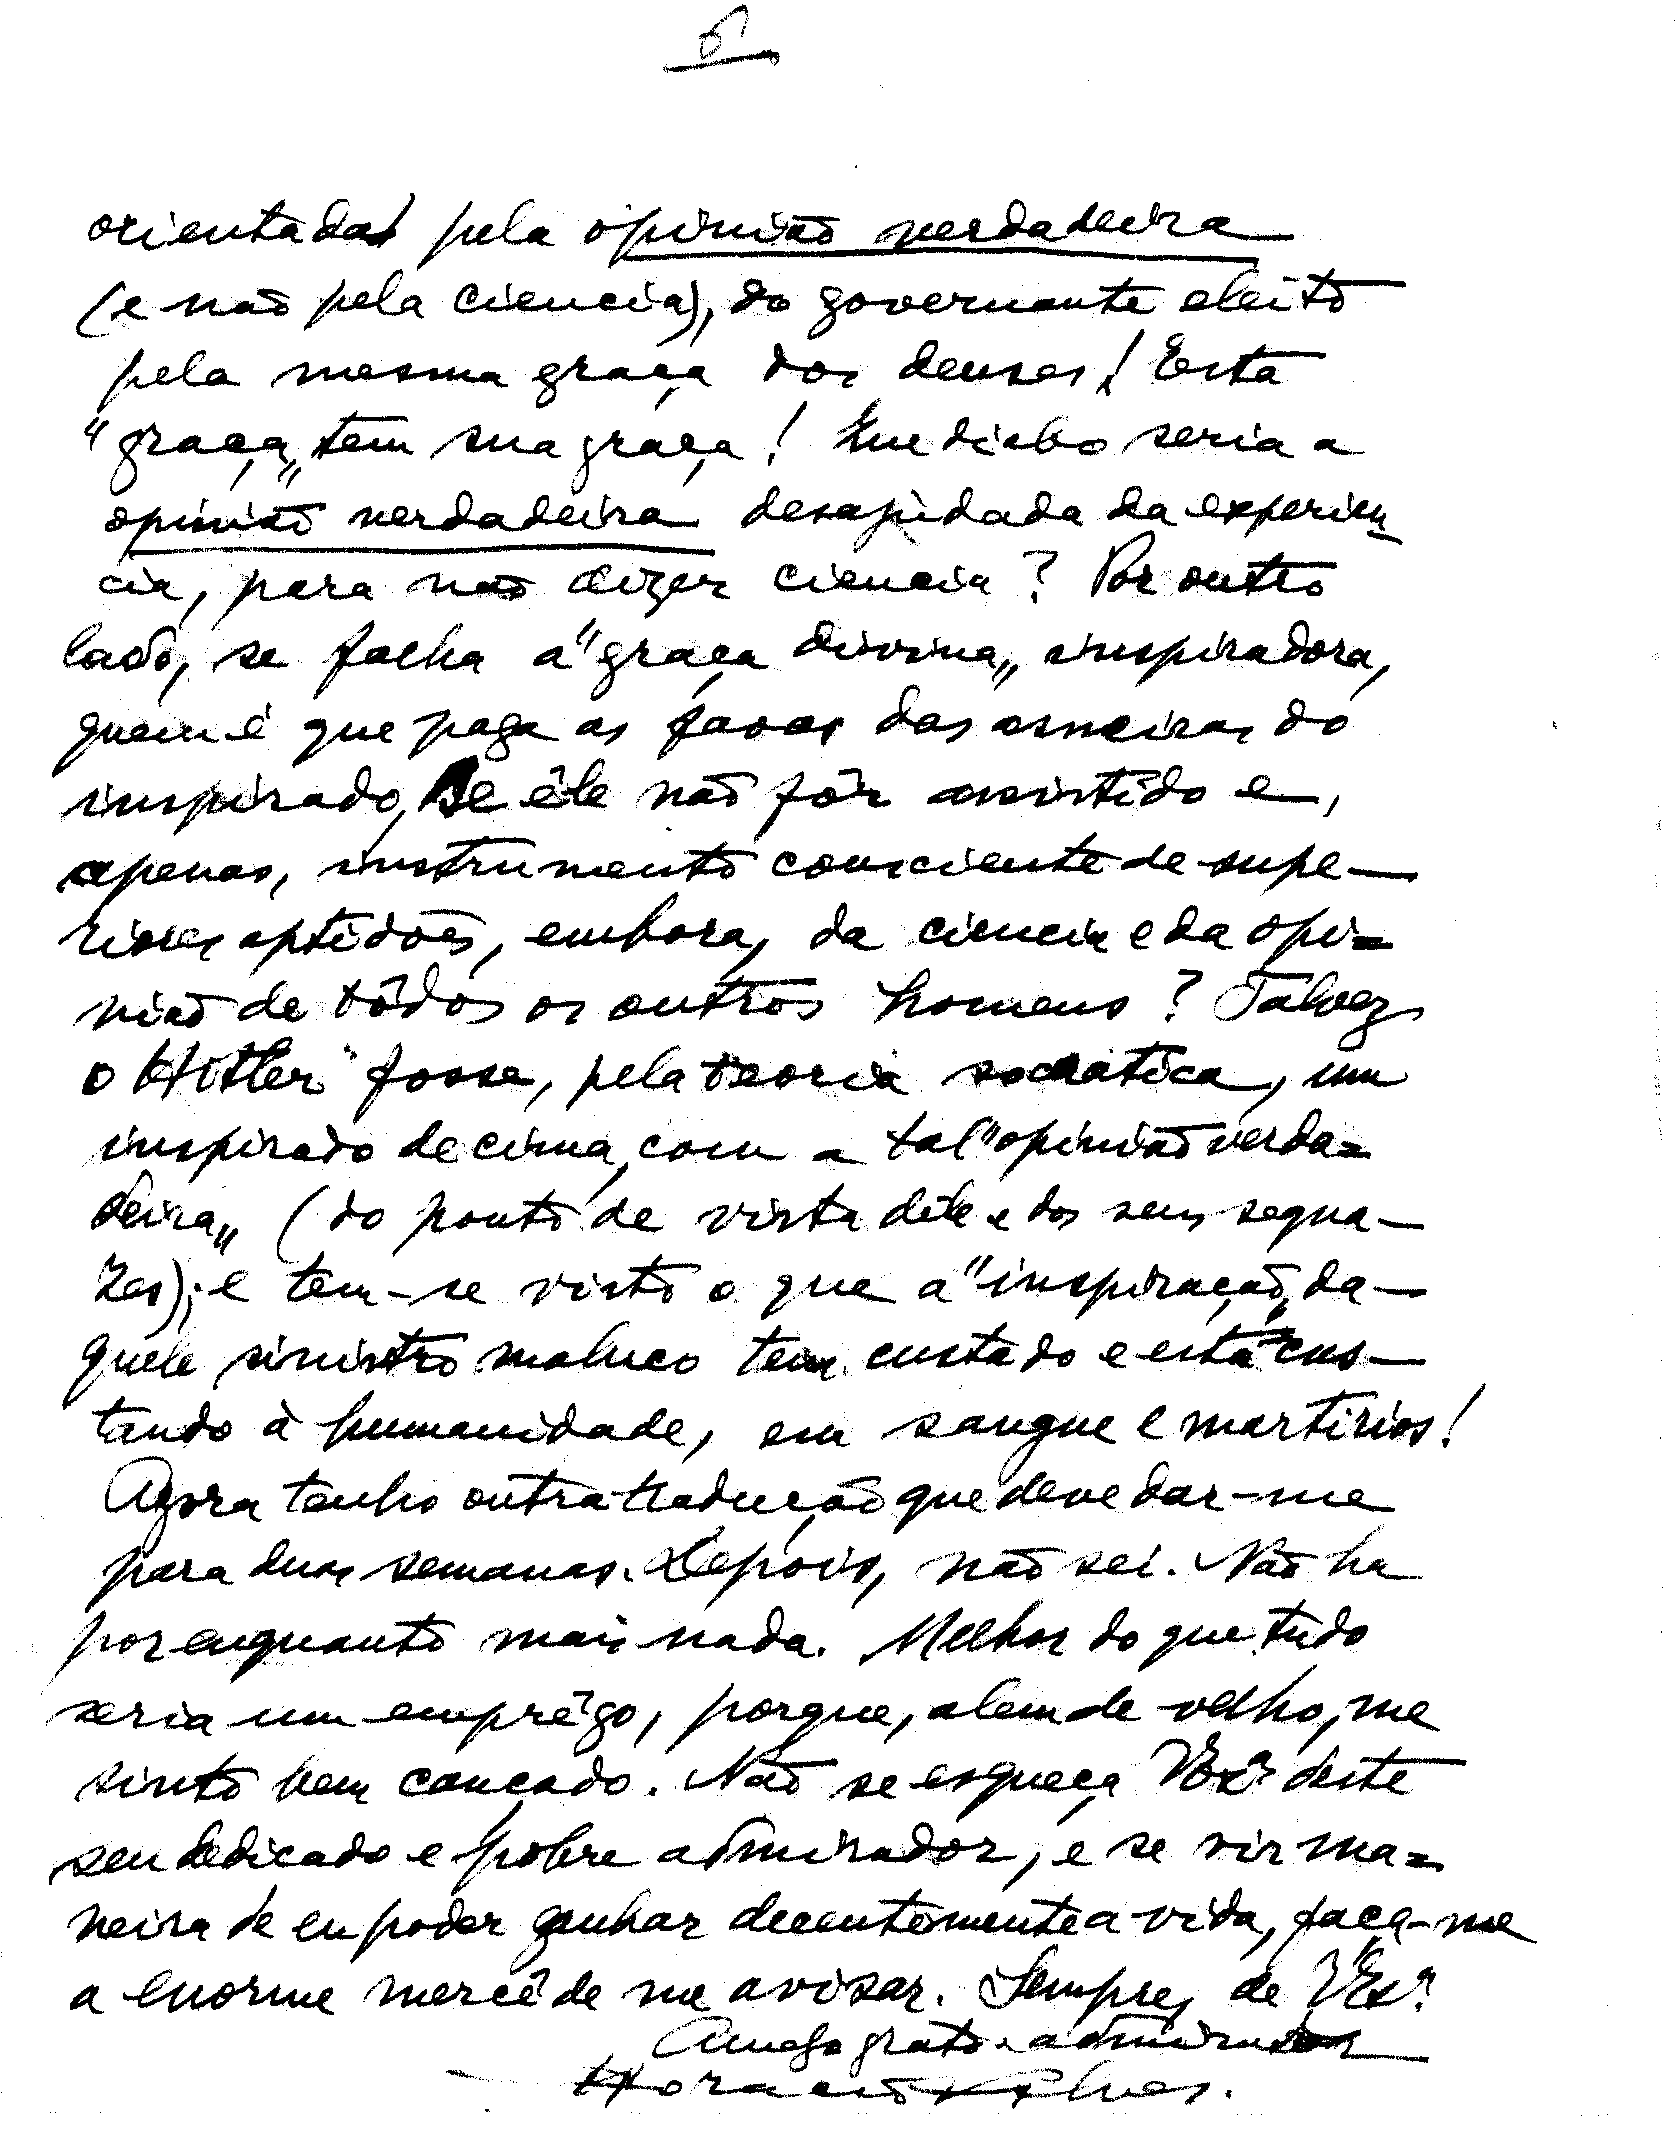 6
orientadas pela opinião verdadeira
(e não pela ciencia), do governante eleito
pela mesma graça dos deuses! Esta
"graça" tem sua graça! Que diabo seria a
opinião verdadeira desajudada da experien-
cia, para não dizer ciencia? Por outro
lado, se falha a "graça divina" inspiradora,
quem é que paga as favas das asneiras do
inspirado, se êle não fôr assistido e,
apenas, instrumento consciente de supe-
riores aptidões, embora, da ciencia e da opi-
nião de tôdos os outros homens? Talvez
o Hitler fosse, pela teoria socratica, um
inspirado de cima, com a tal "opinião verda-
deira" (do ponto de vista dêle e dos seus sequa-
zes); e tem-se visto o que a "inspiração" da-
quele sinistro maluco tem custado e está cus-
tando à humanidade, em sangue e martirios!
Agora tenho outra tradução que deve dar-me
para duas semanas. Depois, não sei. Não ha
por enquanto mais nada. Melhor do que tudo
seria um emprêgo, porque, alem de velho, me
sinto bem cançado. Não se esqueça V. Exª deste
seu dedicado e pobre admirador, e se vir ma-
neira de eu poder ganhar decentemente a vida, faça-me
a enorme mercê de me avisar. Sempre, de V. Exª
Amigo grato e admirador